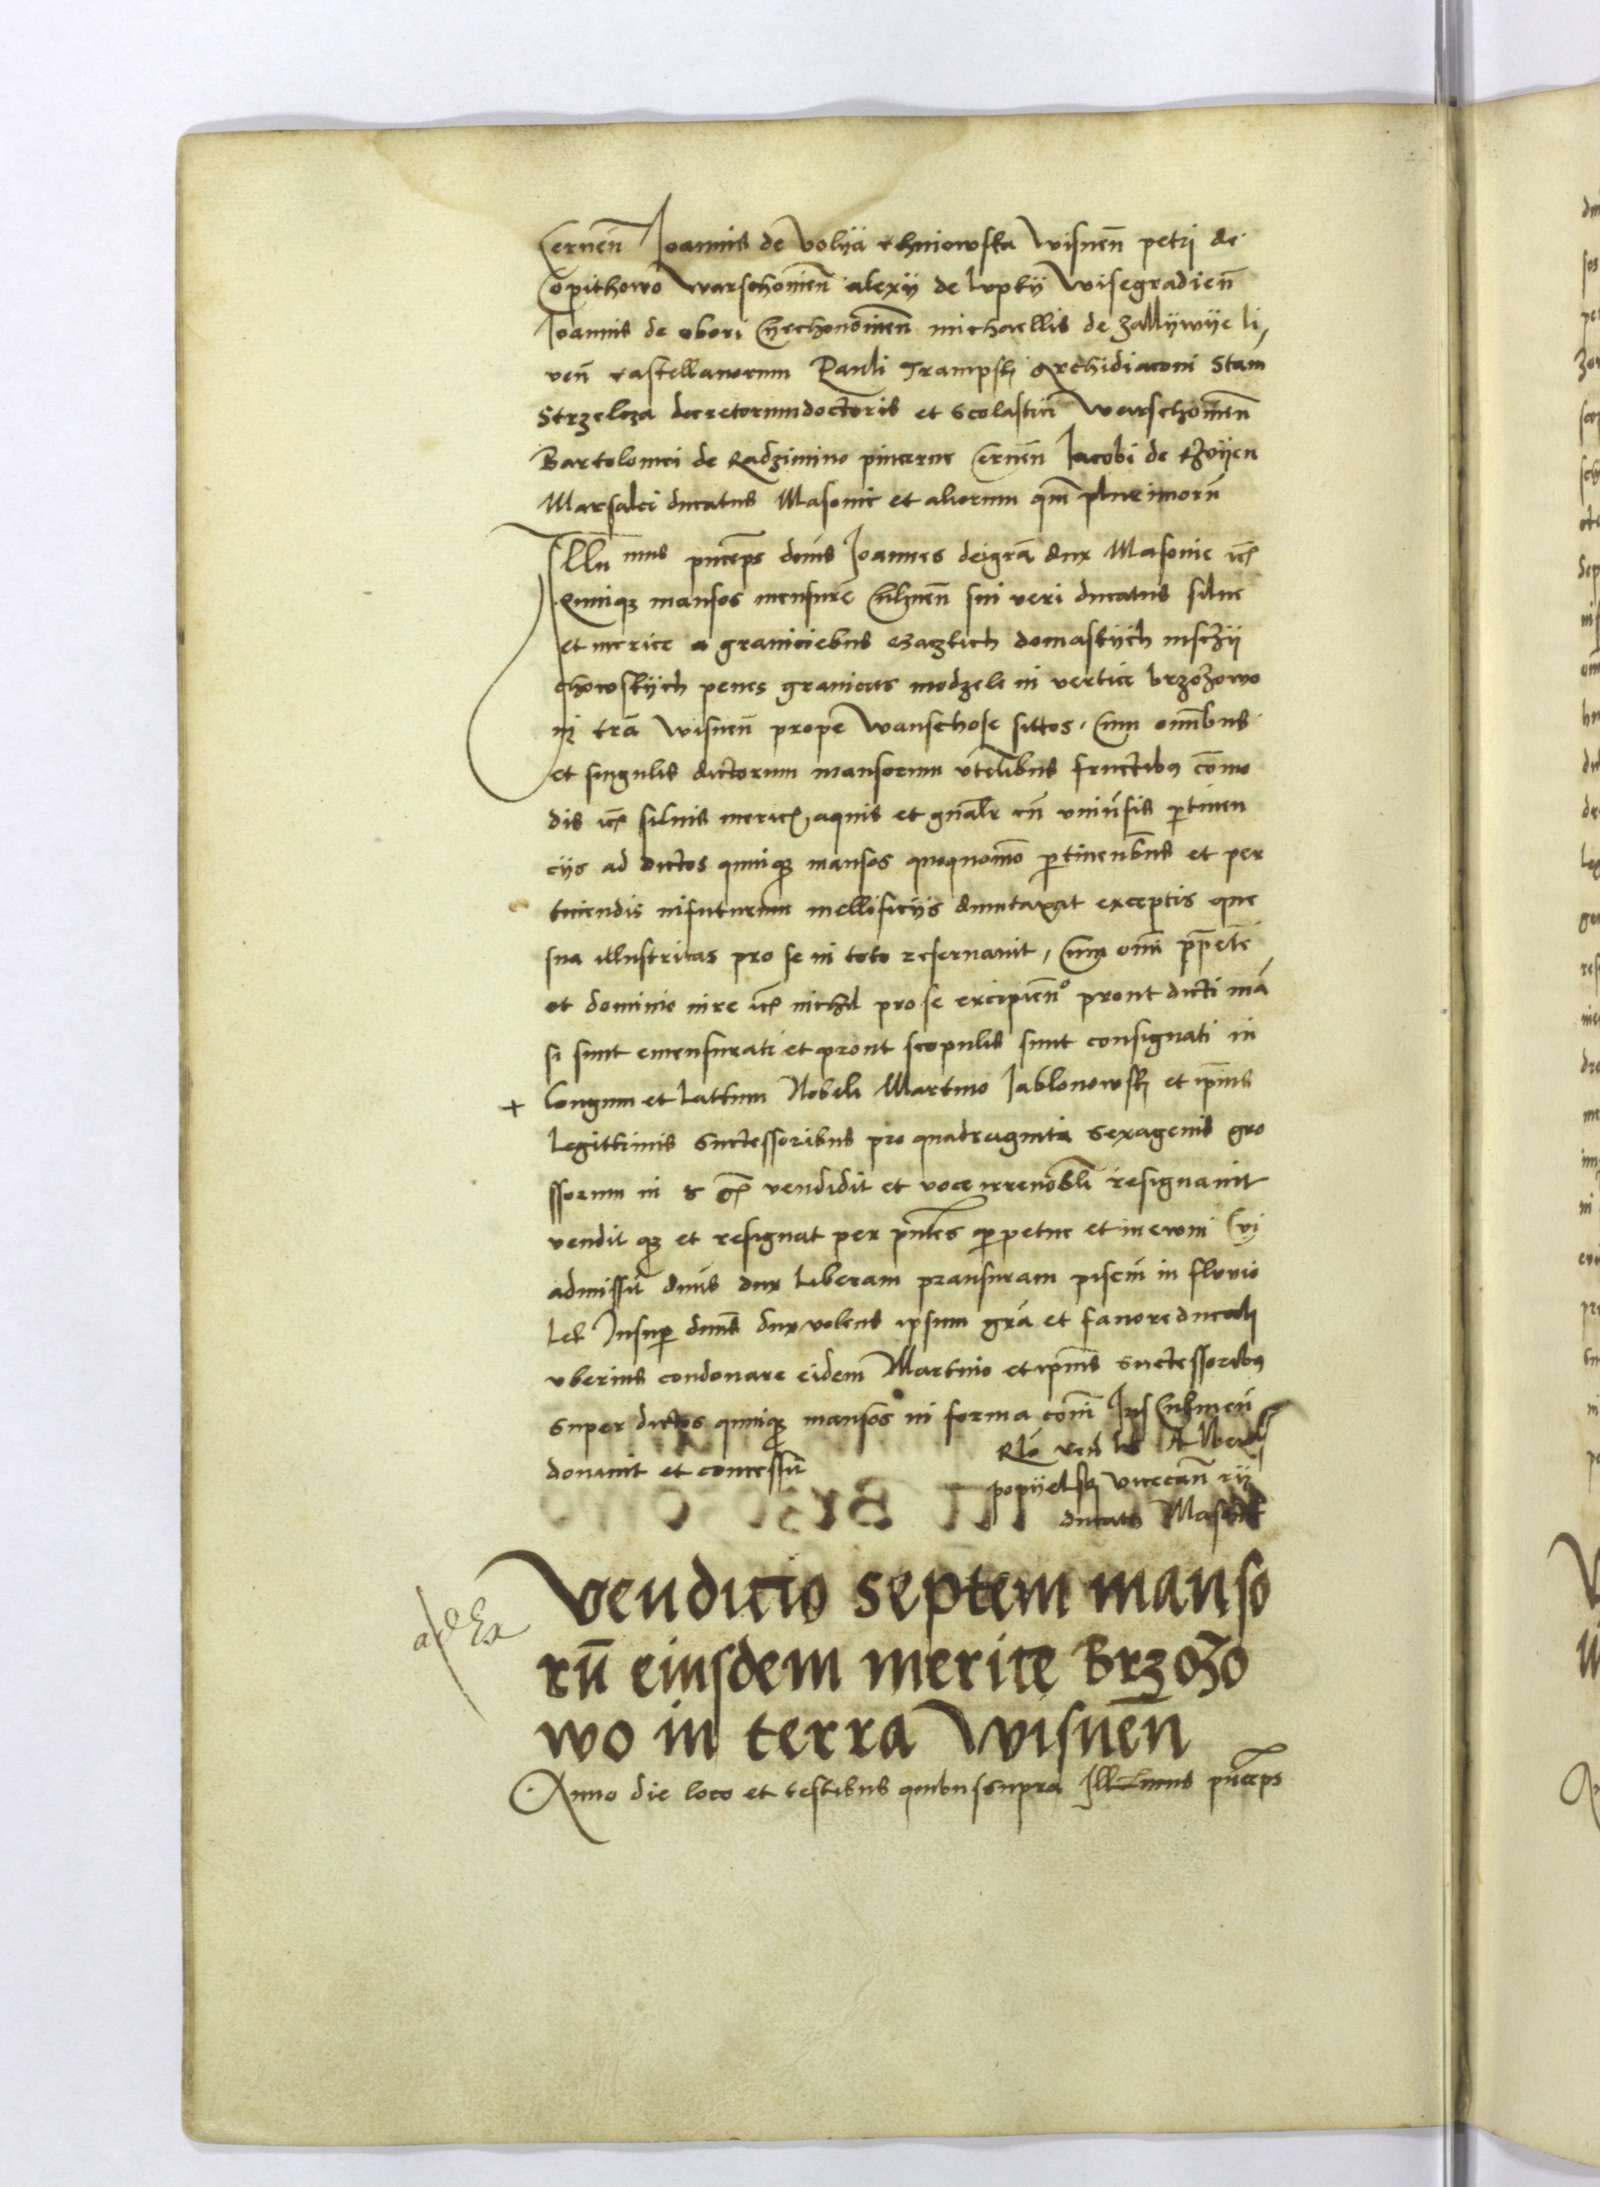 Cernen̄ Joannis de Volya chniowska Wisnen̄ petri de
Copithowo Warschouien̄ alexÿ de lupky Wisegradien̄
Joannis de obori Cyechonouien̄ michaellis de zallywye li,
uen̄ castellanorum Pauli Trampskj Archidiaconi Stan
Strzelcza decretorum doctoris et scolastici Warschouien̄
Bartolomei de Radzimino pincerne Cernen̄ Jacobi de
Marsalci ducatus Masouie et aliorum qm̄ plurimorū
Illu mus prīceps dom̄s Joannes dei gr̄a dux Masouie
Quinq3 mansos mensure Culmen̄ sui veri ducatus silue
et merice a graniciebus domaskych
chowskych penes granicies modzele in vertice brzozowo
in tr̄a Wisnen̄ prope Wanschose sittos, Cum om̄ibus
et singulis dictorum mansorum vtel̄ibus fructib9 cōmo
dis siluis meric aquis et gn̄aliter cū vniu̾sis ptinen
cÿs ad dictos quinq3 mansos quoquomō ptinentibus et per
tinendis in futurum mellificÿs duntaxat exceptis que
sua illustritas pro se in toto reseruauit, Cum om̄i
et dominio iure nichil pro se excipien̄° prout dicti mā
si sunt emensurati et prout scopulis sunt consignati in
+ Longum et Lattum Nobili Martino Jablonowskj et ip̄ius
Legittimis successoribus pro quadraginta sexagenis gro
ssorum in vendidit et voce irreuobl̄i resignauit
vendit q3 et resignat per pn̄tes ppetue et in ewm Cui
admissit dn̄s dux Liberam pisciū in fluuio
Lek Insup dn̄s dux volens ipsum gr̄a et fauore ducali
vberius condonare eidem Martino et ip̄ius successorib9
super dictos quinq3 mansos in forma com̄i Jus Culmen̄
donauit et concessit
Rlō ven̄ Alber
popyelskj vicecan̄
ducatus Masouie
ad Ex
Vendicio septem manso
rū eiusdem merice Brzozo
wo in terra Wisnen̄
Anno die loco et testibus quibus supra Illmus prīceps